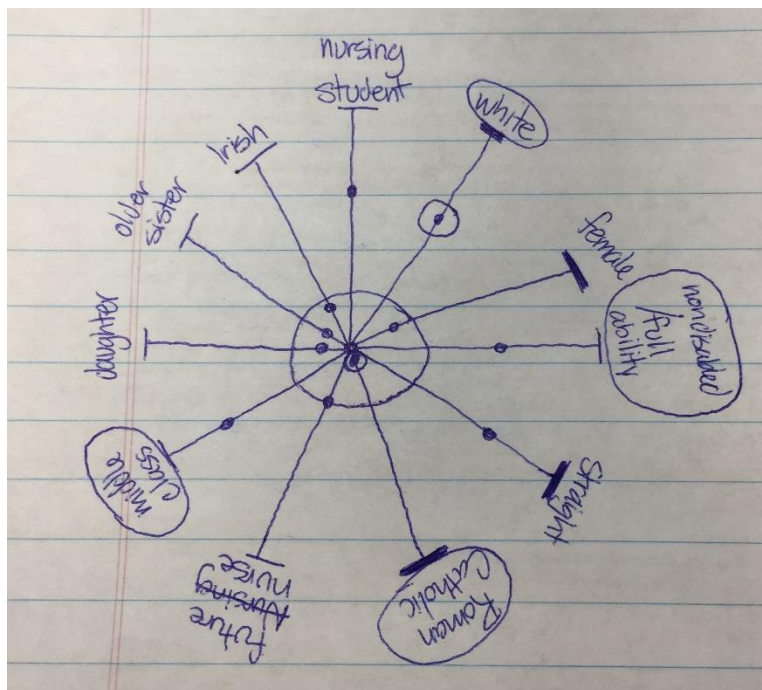 nursing
student
white
female
nondisabled
/full
ability
straight
Roman
Catholic
future
Nursing
nurse
middle
class
daughter
older
sister
Irish